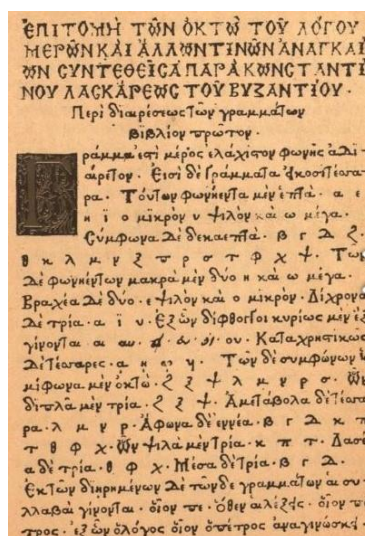 ἘΠΙΤΟΜῊ ΤΩ͂Ν ὈΚΤῺ ΤΟΥ͂ ΛΌΓΟΥ
ΜΕΡΩ͂Ν ΚΑῚ ἌΛΛΩΝ ΤΙΝΩ͂Ν ἈΝΑΓΚΑΙ
ΩΝ ΣΥΝΤΕΘΕΙ͂ΣΑ ΠΑΡᾺ ΚΩΝΣΤΑΝΤΙ
ΝΟΥ ΛΑΣΚΆΡΕΩΣ ΤΟΥ͂ ΒΥΖΑΝΤΊΟΥ·
Περὶ διαιρέσεως τῶν γραμμάτων
βιβλίον πρῶτον·
ράμμα ἐστὶ μέρος ἐλάχιστον φωνῆς ἀδι
αίρετον· Εἰσὶ δὲ γράμματα εἰκοσιτέσσα
ρα· Τούτων φωνήεντα μὲν ἑπτά· α ε
η ϊ ο μικρὸν υ ψιλὸν καὶ ω μέγα·
Σύμφωνα δὲ δεκαεπτά· β γ δ ζ
θ κ λ μ ν ξ π ρ σ τ φ χ ψ· Τῶν
δὲ φωνηέντων μακρὰ μὲν δύο η καὶ ω μέγα·
Βραχέα δὲ δύο· ε ψιλὸν καὶ ο μικρὸν· Δίχρονα
δὲ τρία· α ϊ υ· Ἐξ ὧν δίφθογγοι κυρίως μὲν ἓξ
γίνονται αι αυ ει ευ οι ου· Καταχρηστικῶς
δὲ τέσσαρες· ᾳ ῃ ῳ υι· Τῶν δὲ συμφώνων ἡ
μίφωνα μὲν ὀκτώ· ζ ξ ψ λ μ ν ρ σ· Ὧν
διπλᾶ μὲν τρία· ζ ξ ψ· Ἀμετάβολα δὲ τέσσα
ρα· λ μ ν ρ· Ἄφωνα δὲ ἐννέα· β γ δ κ π
τ θ φ χ· Ὧν ψιλὰ μὲν τρία· κ π τ· Δασέ
α δὲ τρία· θ φ χ· Μέσα δὲ τρία· β γ δ·
Ἐκ τῶν διηρημένων δὲ τῶνδε γραμμάτων αἱ συλ
λαβαὶ γίνονται· οἷον πε· ὅθεν αἱ λέξεις· οἷον πέ
τρος· ἐξ ὧν ὁ λόγος οἷον ὁ πέτρος ἀναγινώσκει·